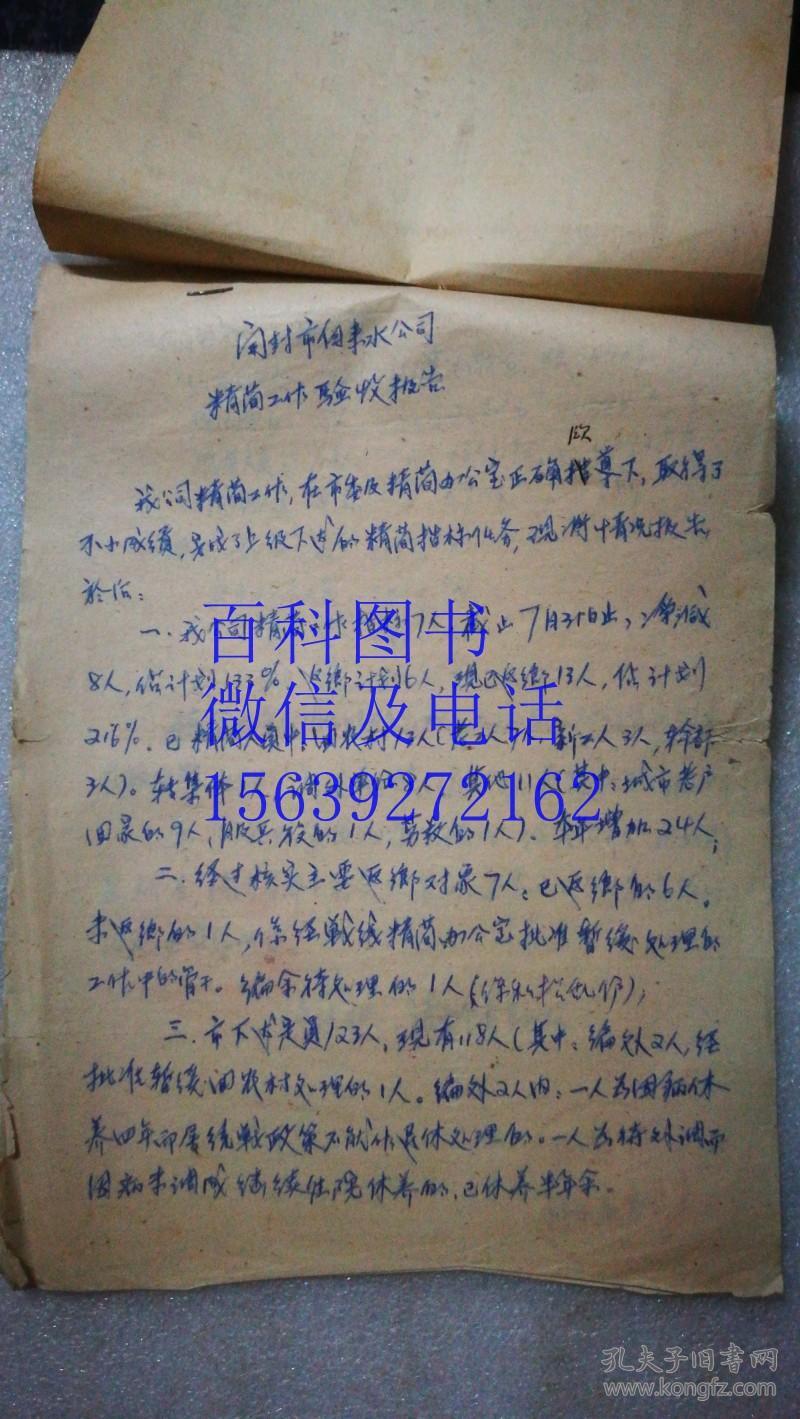 开封市自来水公司
精简工作验收报告
我公司精简工作,在市委及精简办公室正确领导下,取得了
不小成绩,完成了上级下达的精简指标任务,现将情况报告
於后:
一、我公司精简工作指标7人,截止7月31日止,净减
8人,佔计划133%,返鄉计划6人,现已返鄉13人,佔计划
216%.已精简人员中,回农村13人(老工人 新工人3人,幹部
3人)。转集体 其他11人(其中:城市老户
回家的9人,服兵役的1人,劳教的1人)、 增加24人;
二、经过核实主要返鄉对象7人:已返鄉的6人。
未返鄉的1人,係经戰线精简办公室批准暂缓处理的
工作中的骨干。编余待处理的1人
三、市下达定員123人,现有118人(其中:编外2人,经
批准暂缓回农村处理的1人。编外2人内:一人为因病休
养四年而属统戰政策不能作退休处理的。一人为待外调而
因病未调成继续住院休养的,已休养半年余。
百科图书
微信及电话
15639272162
孔夫子旧书网
www.kongfz.com